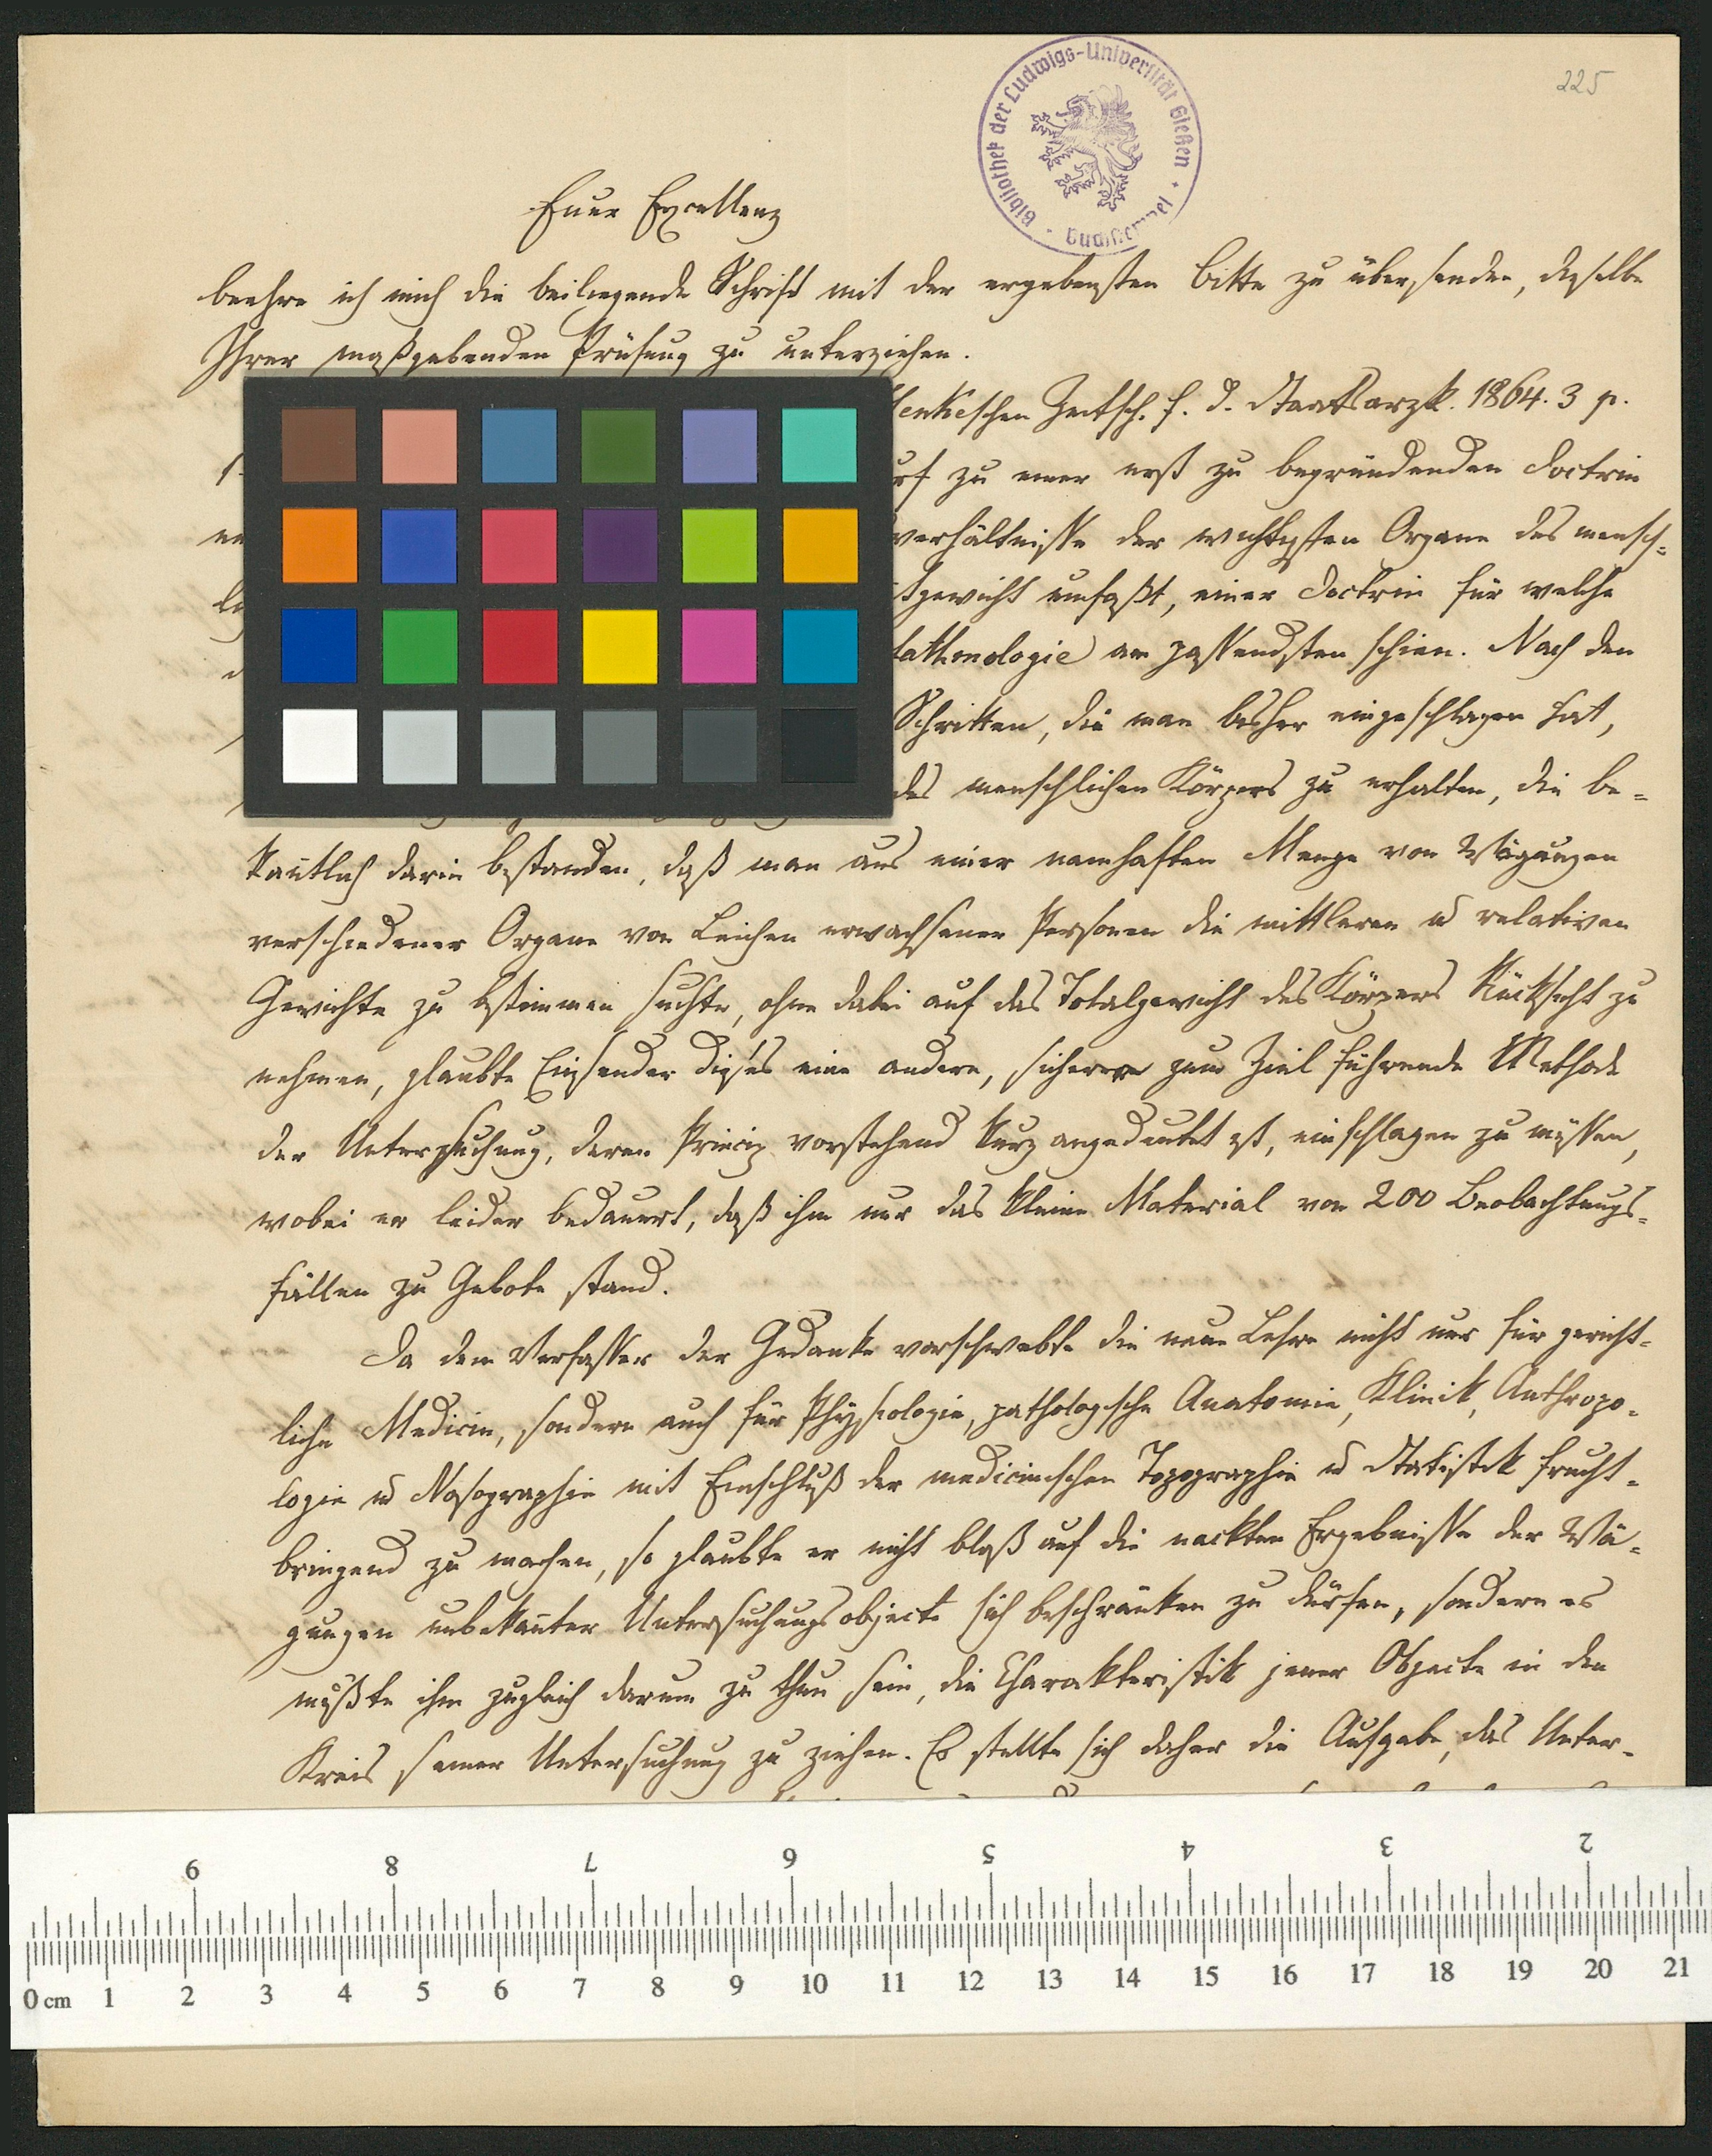 225
Bibliothek der Ludwigs-Universität Gießen
Euer Excellenz
beehre ich mich die beiliegende Schrift mit der ergebensten Bitte zu übersenden, dieselbe
Ihrer maßgebenden Prüfung zu unterziehen.
Henkeschen Zeitsch. f. d. Staatsarzk. 1864. 3 p.
zu einer erst zu begründenden Doctrin
verhältnisse der wichtigsten Organe des mensch-
gewicht umfaßt, einer Doctrin für welche
stathmologie am passendsten schien. Nach den
Schritten, die man bisher eingeschlagen hat,
des menschlichen Körpers zu erhalten, die be-
kan̄tlich darin bestanden, daß man aus einer namhaften Menge von Wägungen
verschiedener Organe von Leichen erwachsener Personen die mittleren u relativen
Gewichte zu bestimmen suchte, ohne dabei auf das Totalgewicht des Körpers Rücksicht zu
nehmen, glaubte Einsender dieses eine andere, sicherer zum Ziel führende Methode
der Untersuchung, deren Princip vorstehend kurz angedeutet ist, einschlagen zu müssen,
wobei er leider bedauert, daß ihm nur das kleine Material von 200 Beobachtungs-
fällen zu Gebote stand.
Da dem Verfasser der Gedanke vorschwebte die neue Lehre nicht nur für gericht-
liche Medicin, sondern auch für Physiologie, pathologische Anatomie, Klinik, Anthropo-
logie u Nosographie mit Einschluß der medicinischen Topographie u Statistik frucht-
bringend zu machen, so glaubte er nicht bloß auf die nackten Ergebnisse der Wä-
gungen unbekan̄ter Untersuchungsobjecte sich beschränken zu dürfen, sondern es
mußte ihm zugleich darum zu thun sein, die Charakteristik jener Objecte in den
Kreis seiner Untersuchung zu ziehen. Es stellte sich daher die Aufgabe, das Unter-
9 8 7 6 5 4 3 2
0 cm 1 2 3 4 5 6 7 8 9 10 11 12 13 14 15 16 17 18 19 20 21